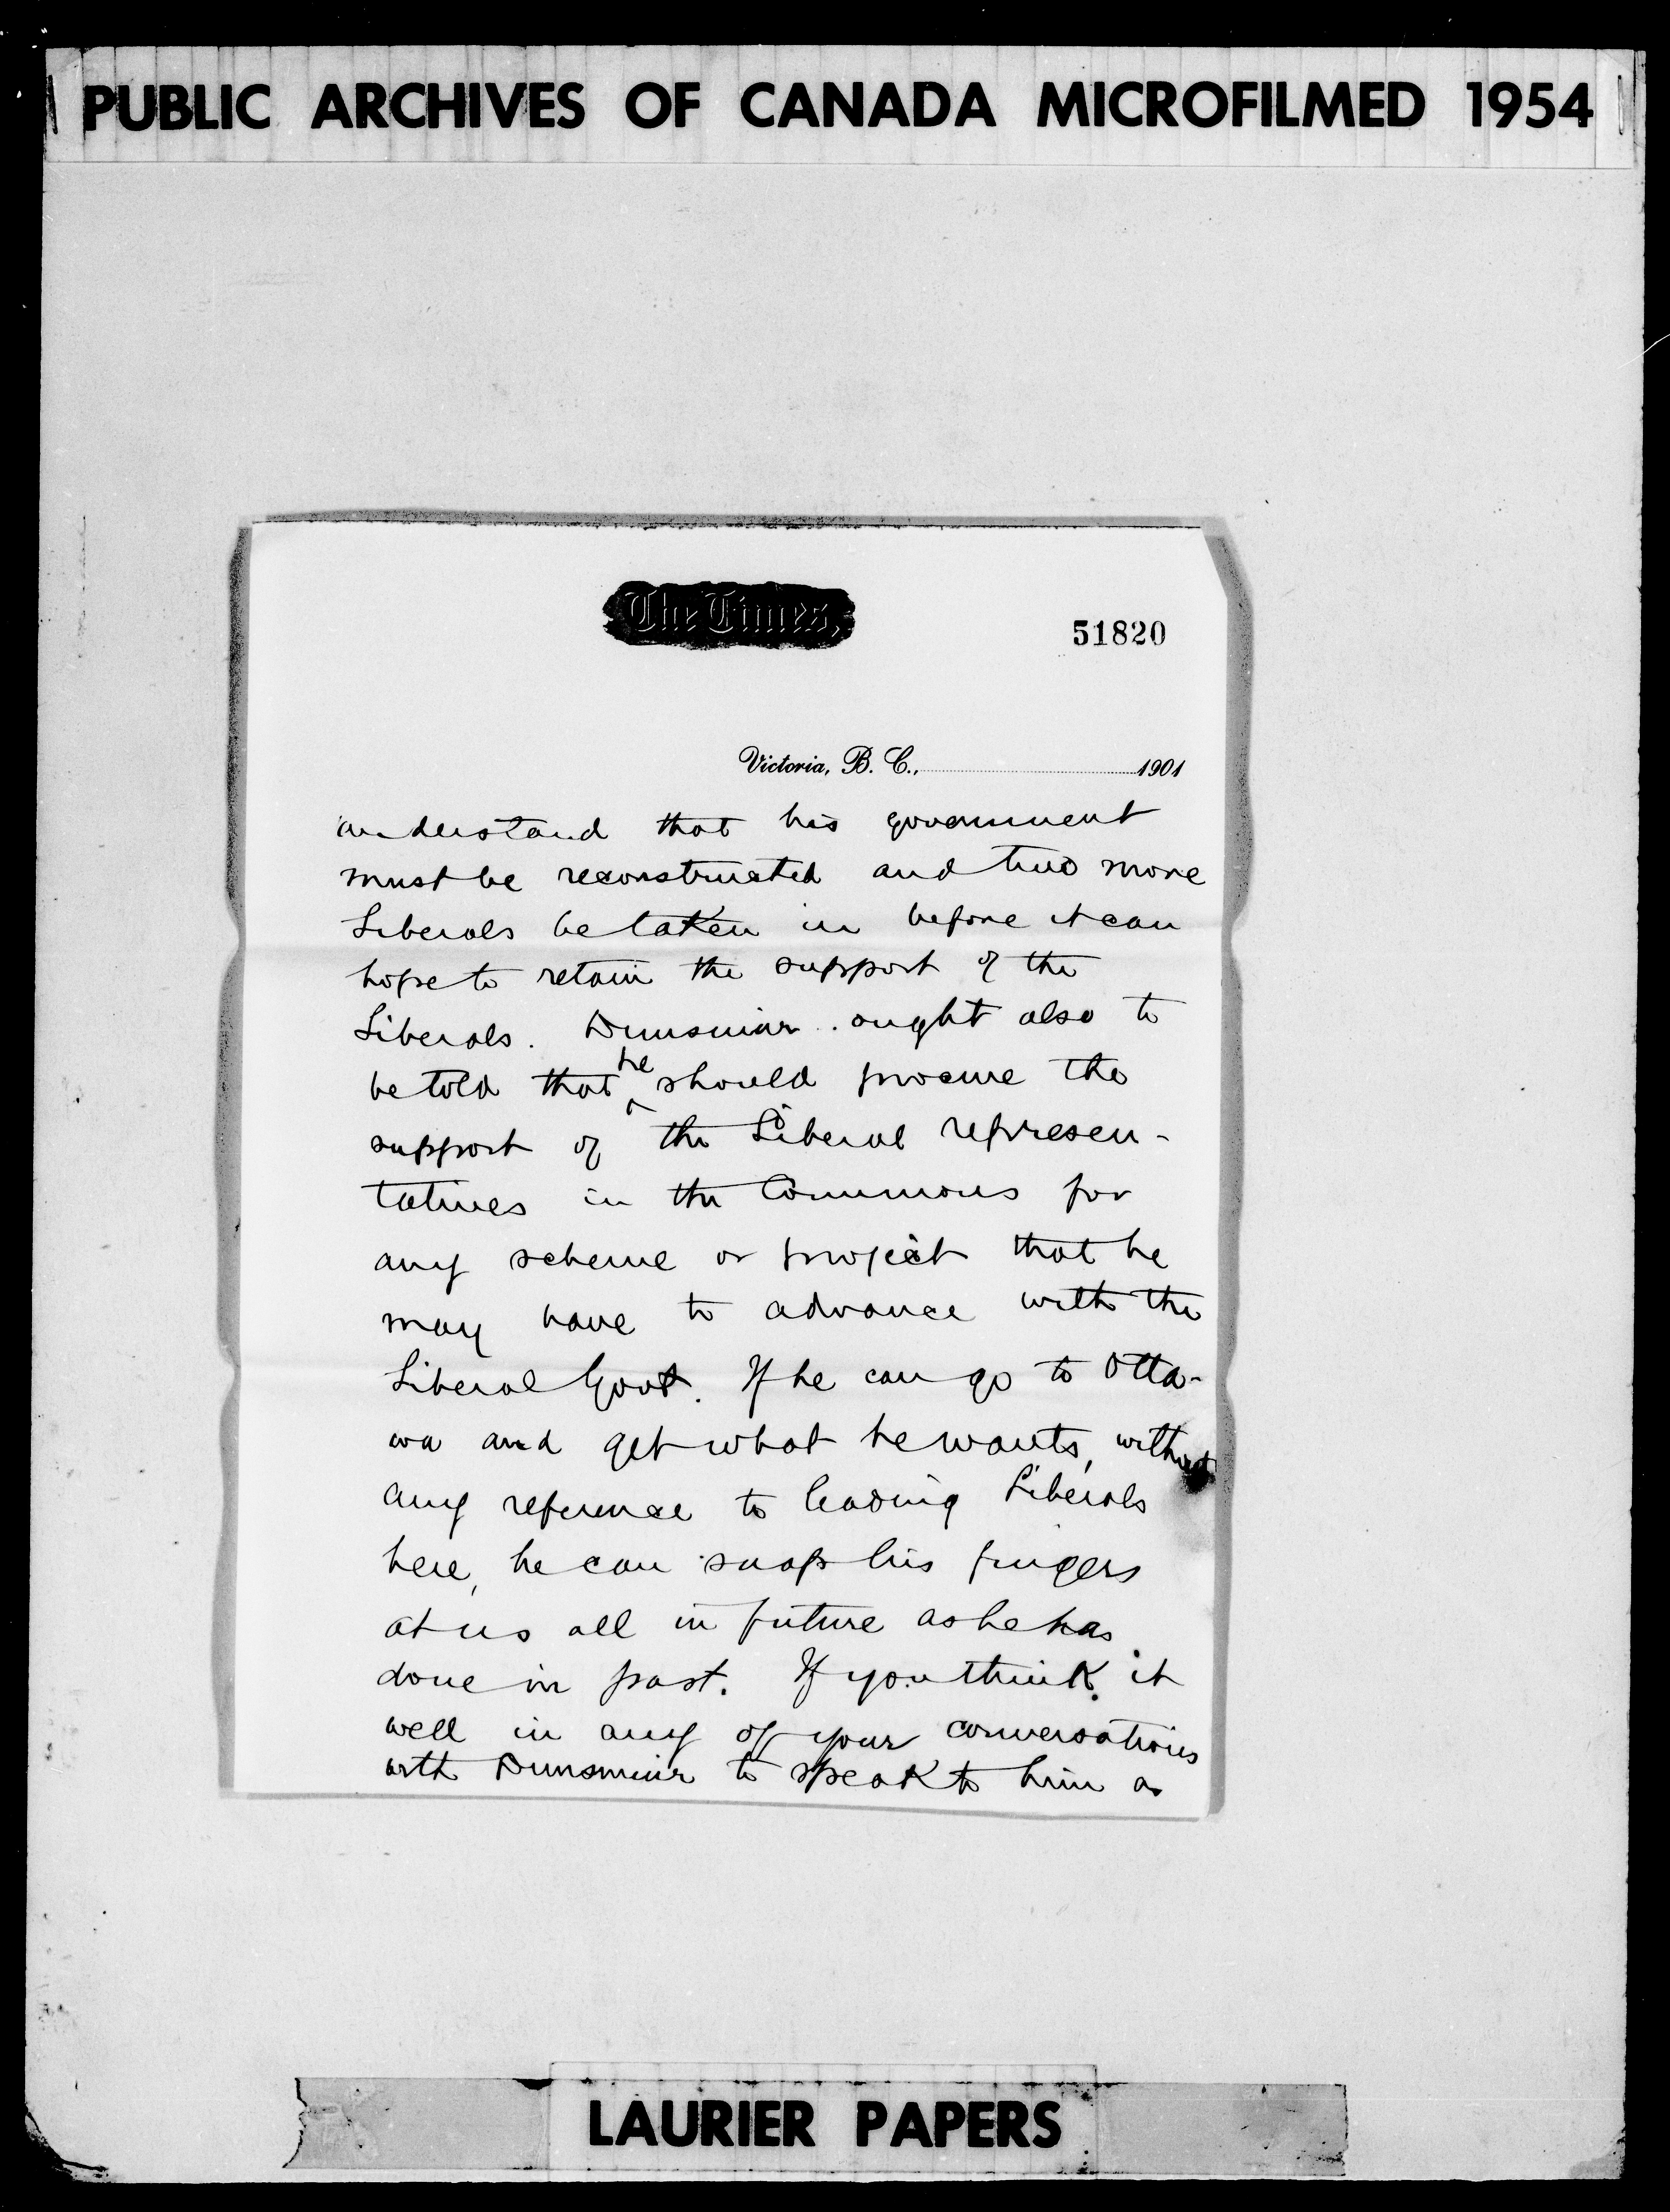 PUBLIC ARCHIVES OF CANADA MICROFILMED 1954
The Times,
51820
Victoria, B. C., 1901
understand that his government
must be reconstructed and two more
Liberals be taken in before it can
hope to retain the support of the
Liberals. Dunsmuir ought also to
be told that he should procure the
support of the Liberal represen-
tatives in the Commons for
any scheme or project that he
may have to advance with the
Liberal Govt. If he can go to Otta-
wa and get what he wants, without
any reference to leading Liberals
here, he can snap his fingers
at us all in future as he has
done in past. If you think it
well in any of your conversations
with Dunsmuir to speak to him as
LAURIER PAPERS